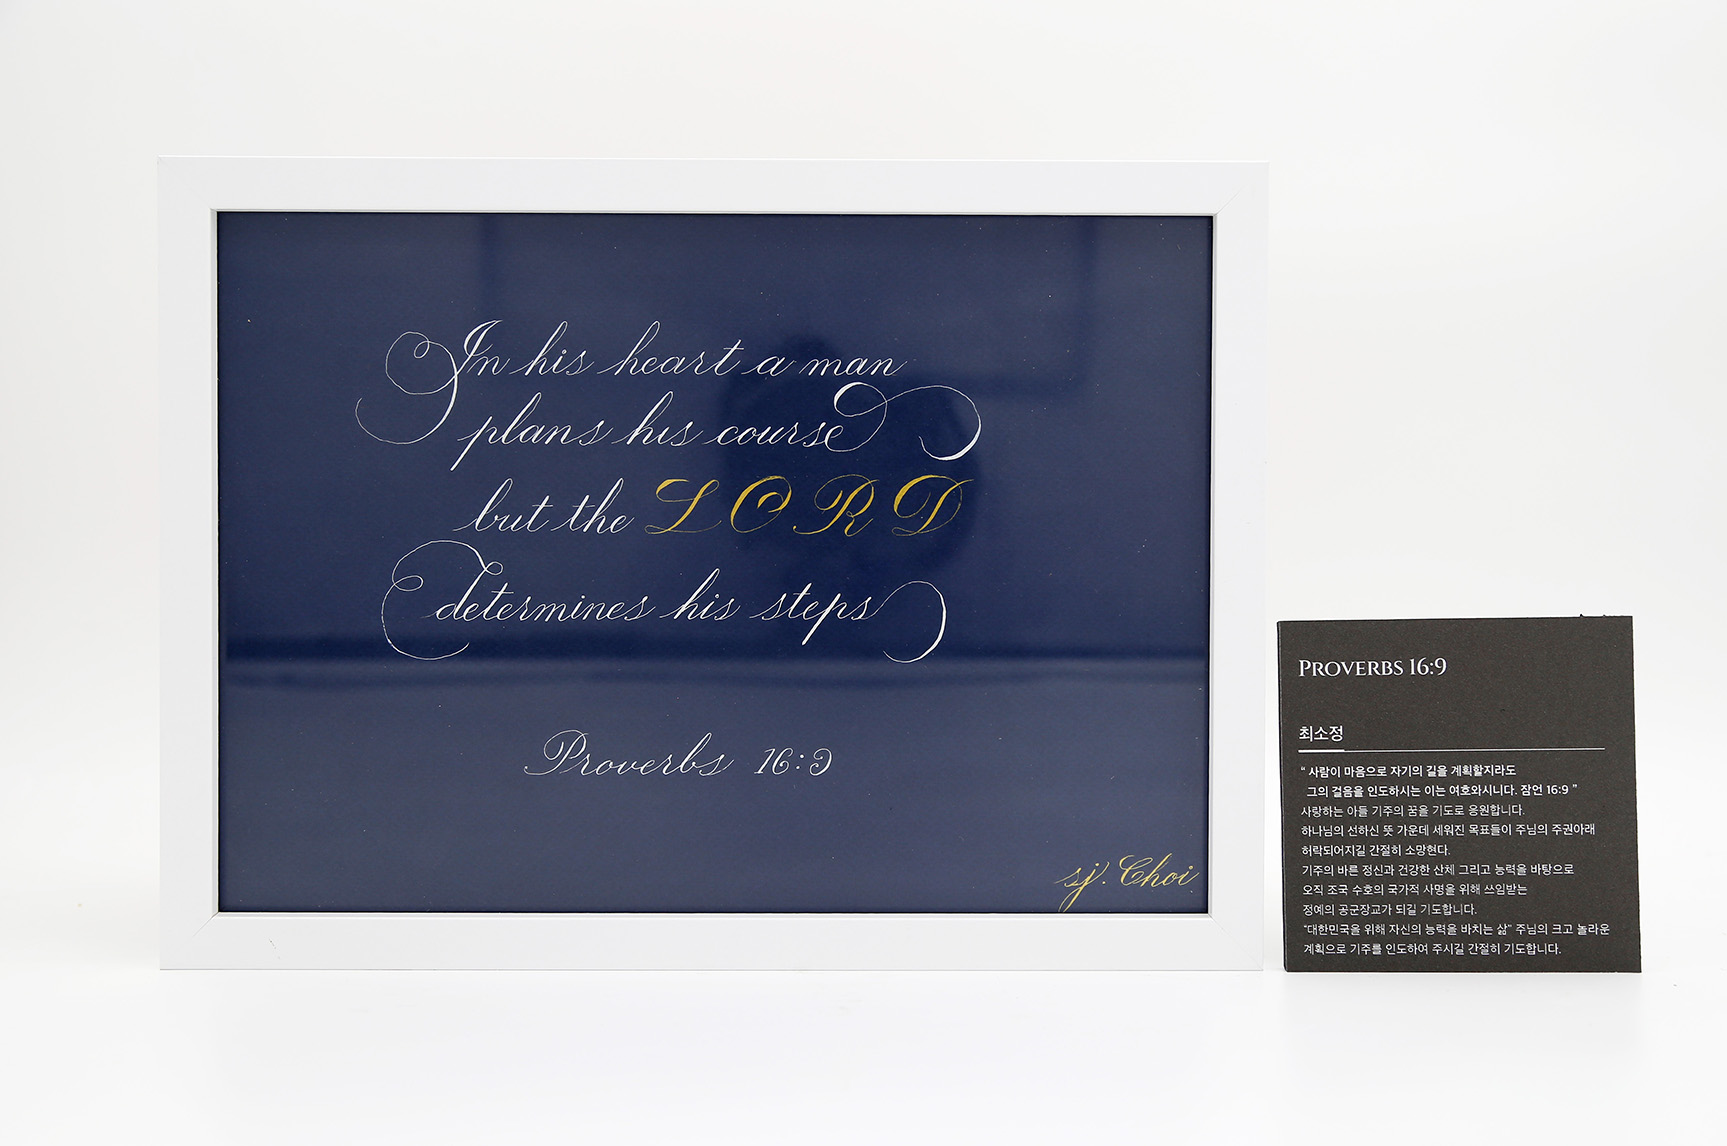 In his heart a man
plans his course
but the LORD
determines his steps
Proverbs 16:9
sj. Choi
PROVERBS 16:9
최소정
“ 사람이 마음으로 자기의 길을 계획할지라도
그의 걸음을 인도하시는 이는 여호와시니다. 잠언 16:9 ”
사랑하는 아들 기주의 꿈을 기도로 응원합니다.
하나님의 선하신 뜻 가운데 세워진 목표들이 주님의 주권아래
허락되어지길 간절히 소망현다.
기주의 바른 정신과 건강한 산체 그리고 능력을 바탕으로
오직 조국 수호의 국가적 사명을 위해 쓰임받는
정예의 공군장교가 되길 기도합니다.
“대한민국을 위해 자신의 능력을 바치는 삶” 주님의 크고 놀라운
계획으로 기주를 인도하여 주시길 간절히 기도합니다.